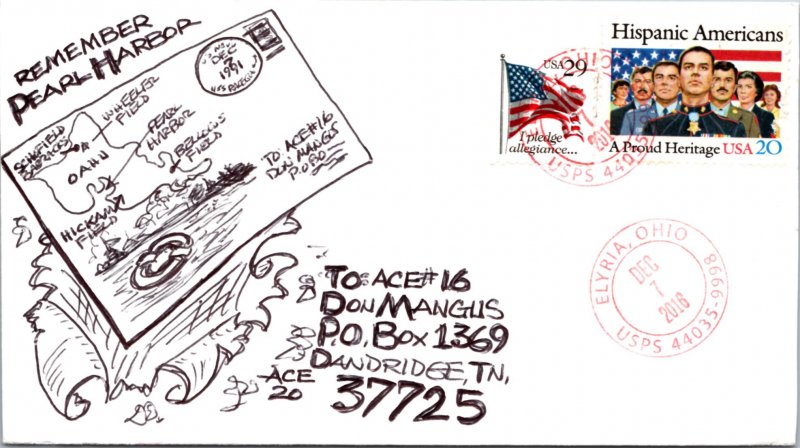 REMEMBER
PEARL HARBOR
DEC
7
1991
WHEELER
FIELD
PEARL
HARBOR
BELLOWS
FIELD
SCHOFIELD
BARRACKS
OAHU
HICKAM
FIELD
TO: ACE#16
DON MANGUS
P.O. BO
USA 29
I pledge
allegiance...
Hispanic Americans
A Proud Heritage USA 20
OHIO
7
2016
USPS 44035
ELYRIA, OHIO
DEC
7
2016
USPS 44035-9998
TO: ACE#16
DON MANGUS
P.O. BOX 1369
DANDRIDGE, TN,
37725
ACE
20